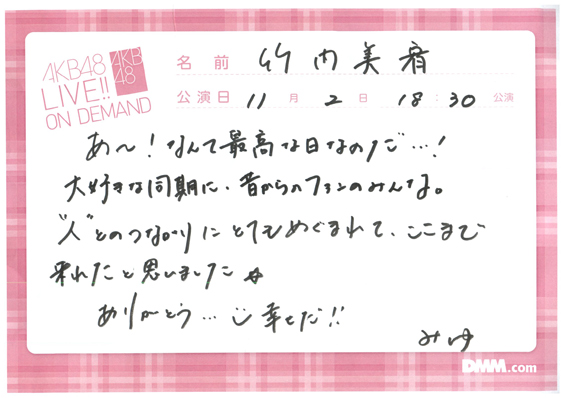 AKB48
LIVE!!
ON DEMAND
AKB
48
名前 竹内美宥
公演日 11月2日 18:30公演
あ〜！なんて最高な日なのだ…！
大好きな同期に、昔からのファンのみんな。
"人"とのつながりにとてもめぐまれて、ここまで
来れたと思いました☆
ありがとう… 幸せだ!!
みゆ
DMM.com